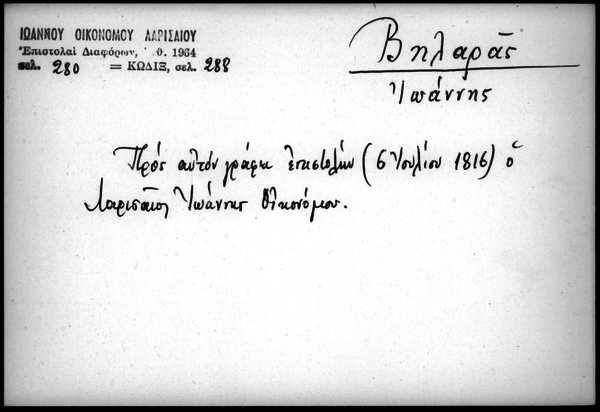 ΙΩΑΝΝΟΥ ΟΙΚΟΝΟΜΟΥ ΛΑΡΙΣΑΙΟΥ
Ἐπιστολαὶ Διαφόρων, θ. 1964
σελ. 280 = ΚΩΔΙΞ, σελ. 288
Βηλαρᾶς
Ἰωάννης
Πρὸς αὐτὸν γράφει ἐπιστολὴν (6 Ἰουλίου 1816) ὁ
Λαρισαῖος Ἰωάννης Οἰκονόμου.